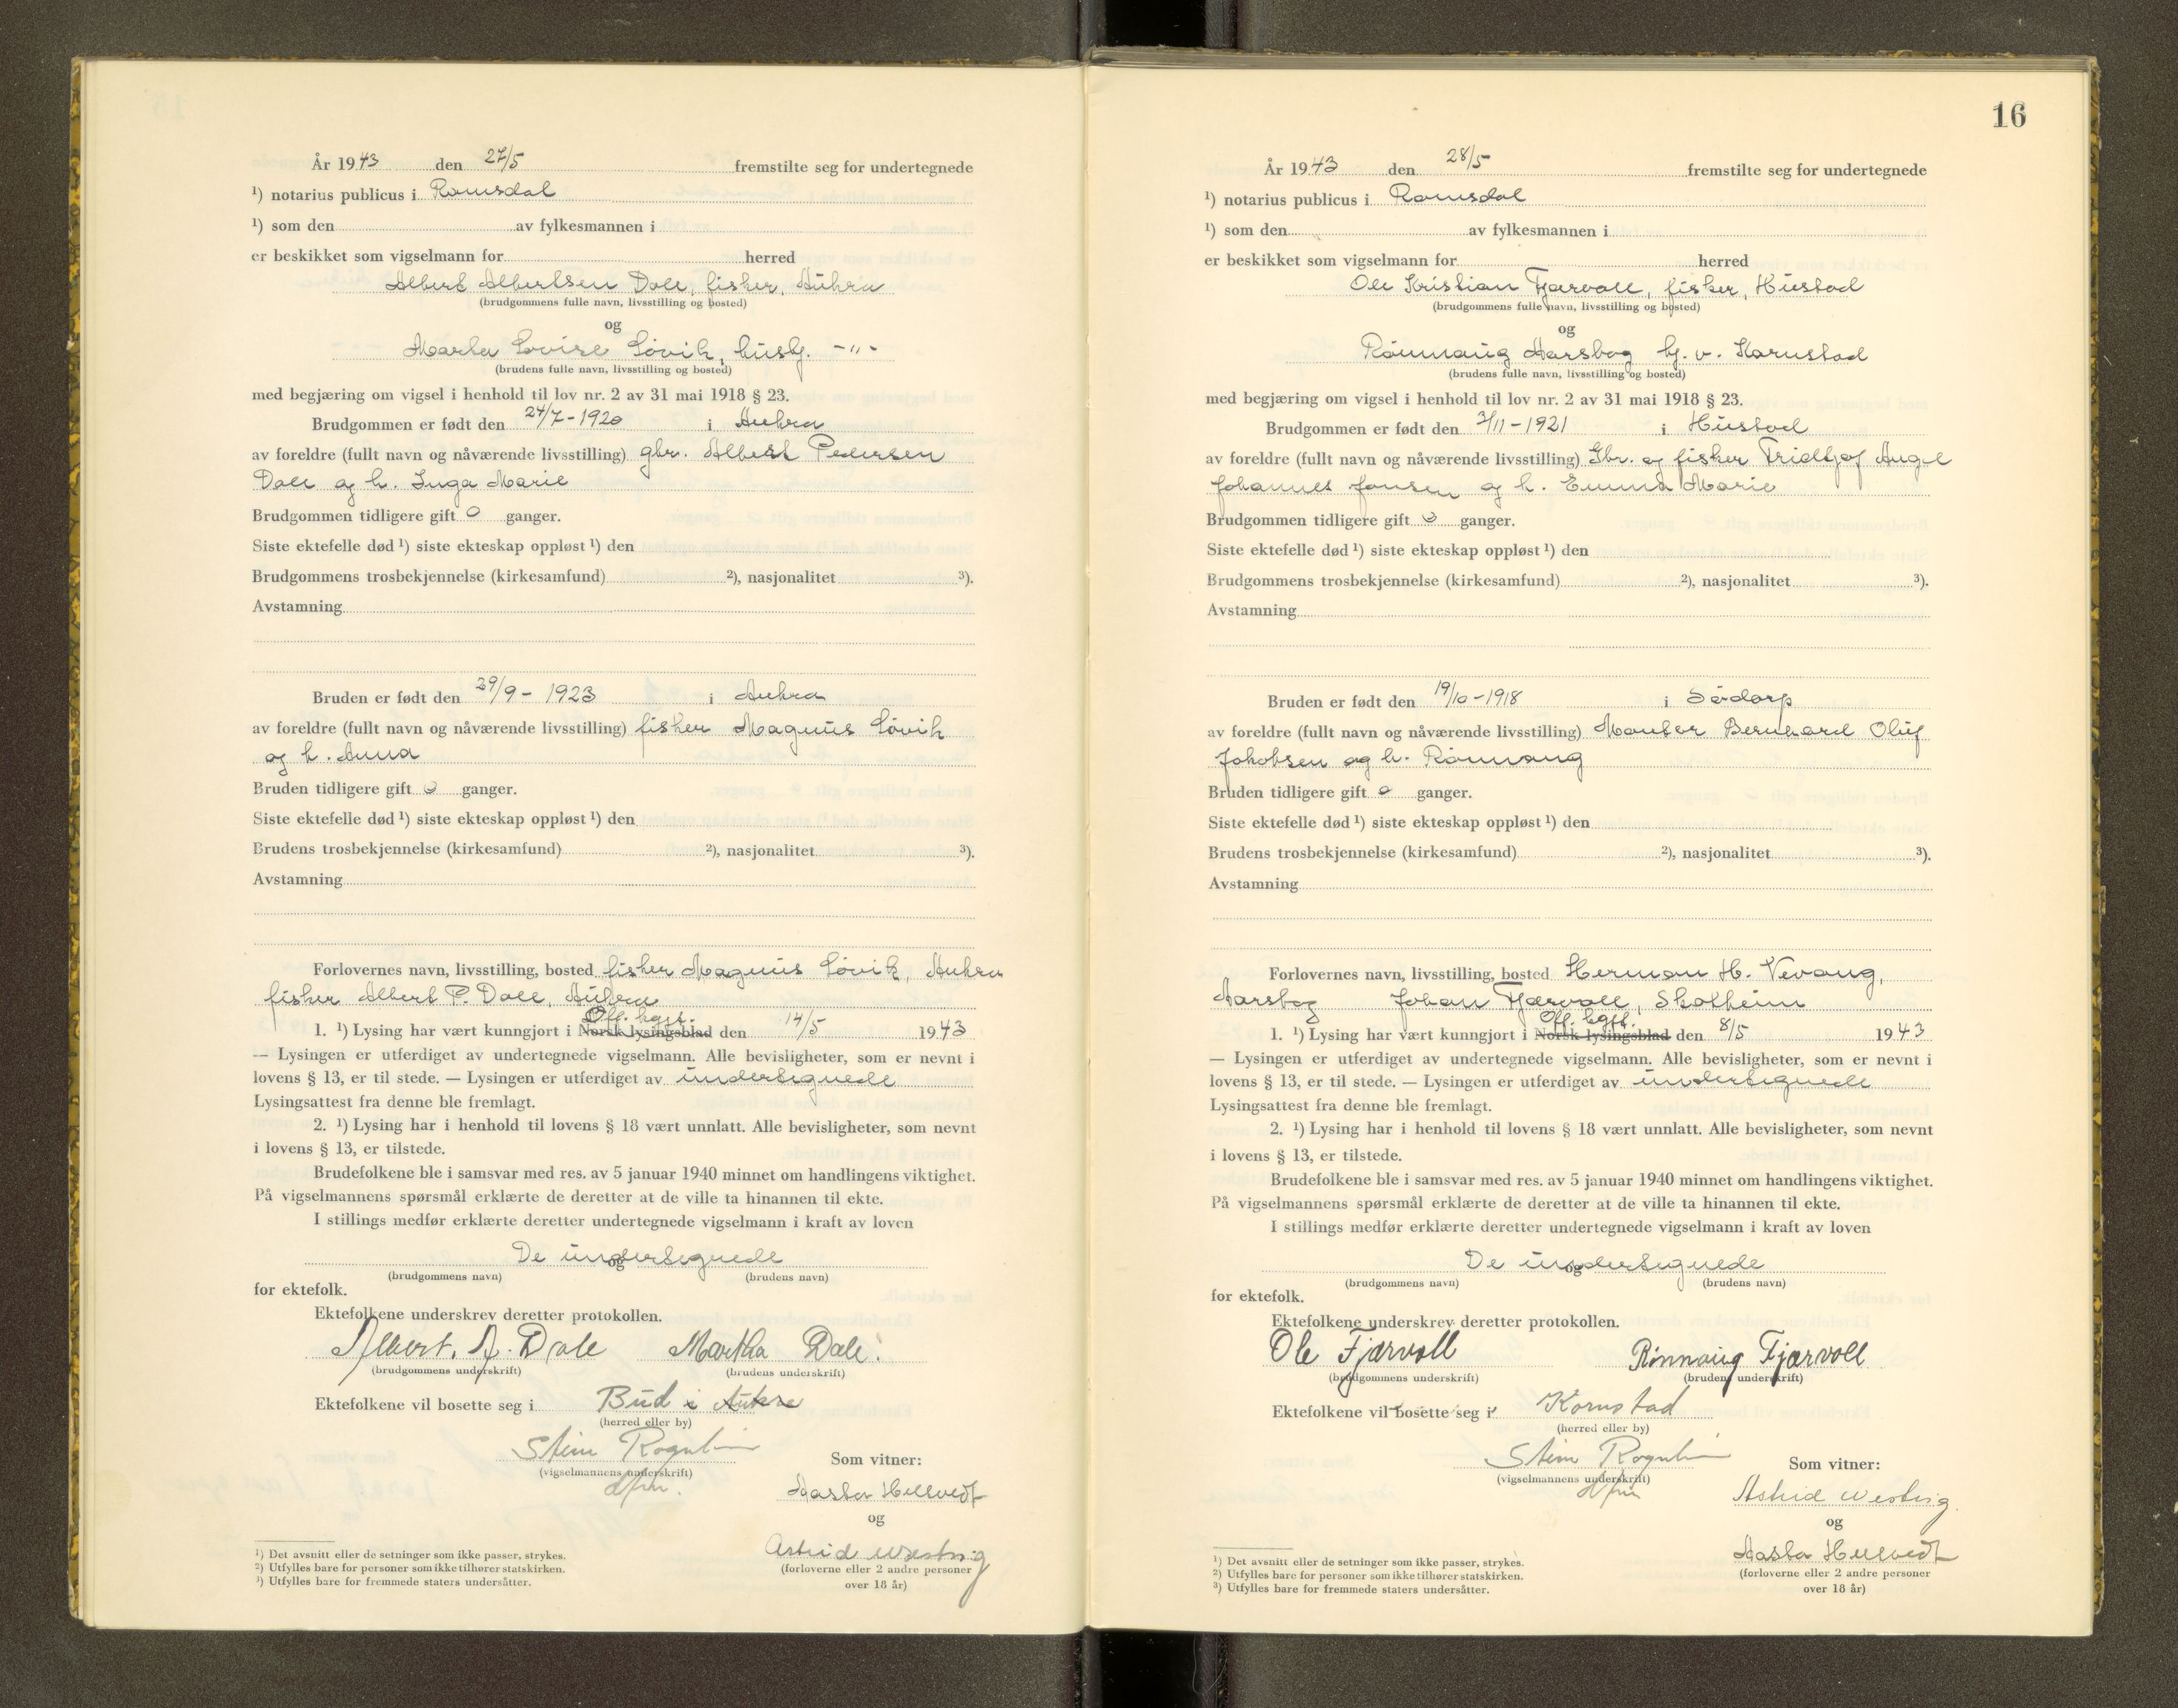 År 1943 den 27/5 fremstilte seg for undertegnede
¹) notarius publicus i Romsdal
¹) som den av fylkesmannen i
er beskikket som vigselmann for herred
Albert Albertsen Dale, fisker, Aukra
(brudgommens fulle navn, livsstilling og bosted)
og
Marta Lovise Løvik, husbj. -"-
(brudens fulle navn, livsstilling og bosted)
med begjæring om vigsel i henhold til lov nr. 2 av 31 mai 1918 § 23.
Brudgommen er født den 24/7-1920 i Aukra
av foreldre (fullt navn og nåværende livsstilling) gbr. Albert Pedersen
Dale og h. Inga Marie
Brudgommen tidligere gift 0 ganger.
Siste ektefelle død ¹) siste ekteskap oppløst ¹) den
Brudgommens trosbekjennelse (kirkesamfund) ²), nasjonalitet ³).
Avstamning
Bruden er født den 29/9-1923 i Aukra
av foreldre (fullt navn og nåværende livsstilling) fisker Magnus Løvik
og h. Anna
Bruden tidligere gift 0 ganger.
Siste ektefelle død ¹) siste ekteskap oppløst ¹) den
Brudens trosbekjennelse (kirkesamfund) ²), nasjonalitet ³).
Avstamning
Forlovernes navn, livsstilling, bosted fisker Magnus Løvik, Aukra
fisker Albert P. Dale, Aukra
Off. kgjt.
1. ¹) Lysing har vært kunngjort i Norsk lysingsblad den 14/5 1943
— Lysingen er utferdiget av undertegnede vigselmann. Alle bevisligheter, som er nevnt i
lovens § 13, er til stede. — Lysingen er utferdiget av undertegnede
Lysingsattest fra denne ble fremlagt.
2. ¹) Lysing har i henhold til lovens § 18 vært unnlatt. Alle bevisligheter, som nevnt
i lovens § 13, er tilstede.
Brudefolkene ble i samsvar med res. av 5 januar 1940 minnet om handlingens viktighet.
På vigselmannens spørsmål erklærte de deretter at de ville ta hinannen til ekte.
I stillings medfør erklærte deretter undertegnede vigselmann i kraft av loven
De undertegnede
og
(brudgommens navn) (brudens navn)
for ektefolk.
Ektefolkene underskrev deretter protokollen.
Albert. A. Dale Martha Dale.
(brudgommens underskrift) (brudens underskrift)
Ektefolkene vil bosette seg i Bud i Aukra
(herred eller by)
Stein Rognlien
(vigselmannens underskrift)
dfm.
Som vitner:
Aasta Hellvedt
og
Astrid Westvig
(forloverne eller 2 andre personer
over 18 år)
¹) Det avsnitt eller de setninger som ikke passer, strykes.
²) Utfylles bare for personer som ikke tilhører statskirken.
³) Utfylles bare for fremmede staters undersåtter.
16
År 1943 den 28/5 fremstilte seg for undertegnede
¹) notarius publicus i Romsdal
¹) som den av fylkesmannen i
er beskikket som vigselmann for herred
Ole Kristian Fjærvoll, fisker, Hustad
(brudgommens fulle navn, livsstilling og bosted)
og
Rønnaug Aarsbog bj. v. Kornstad
(brudens fulle navn, livsstilling og bosted)
med begjæring om vigsel i henhold til lov nr. 2 av 31 mai 1918 § 23.
Brudgommen er født den 3/11-1921 i Hustad
av foreldre (fullt navn og nåværende livsstilling) Gbr. og fisker Fridtjof Angel
Johannes Jonsen og h. Emma Marie
Brudgommen tidligere gift 0 ganger.
Siste ektefelle død ¹) siste ekteskap oppløst ¹) den
Brudgommens trosbekjennelse (kirkesamfund) ²), nasjonalitet ³).
Avstamning
Bruden er født den 19/10-1918 i Sødorp
av foreldre (fullt navn og nåværende livsstilling) Montør Bernhard Oluf
Jakobsen og h. Rønnaug
Bruden tidligere gift 0 ganger.
Siste ektefelle død ¹) siste ekteskap oppløst ¹) den
Brudens trosbekjennelse (kirkesamfund) ²), nasjonalitet ³).
Avstamning
Forlovernes navn, livsstilling, bosted Herman H. Vevang,
Aarsbog Johan Fjærvoll, Skotheim
Off. kgjt.
1. ¹) Lysing har vært kunngjort i Norsk lysingsblad den 8/5 1943
— Lysingen er utferdiget av undertegnede vigselmann. Alle bevisligheter, som er nevnt i
lovens § 13, er til stede. — Lysingen er utferdiget av undertegnede
Lysingsattest fra denne ble fremlagt.
2. ¹) Lysing har i henhold til lovens § 18 vært unnlatt. Alle bevisligheter, som nevnt
i lovens § 13, er tilstede.
Brudefolkene ble i samsvar med res. av 5 januar 1940 minnet om handlingens viktighet.
På vigselmannens spørsmål erklærte de deretter at de ville ta hinannen til ekte.
I stillings medfør erklærte deretter undertegnede vigselmann i kraft av loven
De undertegnede
og
(brudgommens navn) (brudens navn)
for ektefolk.
Ektefolkene underskrev deretter protokollen.
Ole Fjærvoll Rønnaug Fjærvoll
(brudgommens underskrift) (brudens underskrift)
Ektefolkene vil bosette seg i Kornstad
(herred eller by)
Stein Rognlien
(vigselmannens underskrift)
dfm
Som vitner:
Astrid Westvig
og
Aasta Hellvedt
(forloverne eller 2 andre personer
over 18 år)
¹) Det avsnitt eller de setninger som ikke passer, strykes.
²) Utfylles bare for personer som ikke tilhører statskirken.
³) Utfylles bare for fremmede staters undersåtter.